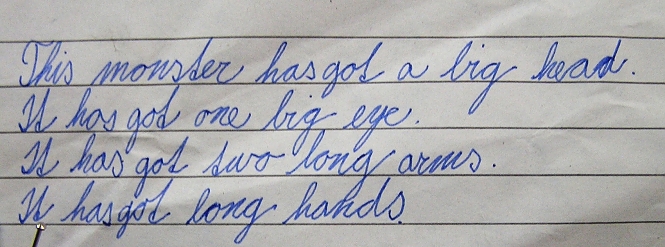 This monster has got a big head.
It has got one big eye.
It has got two long arms.
It has got long hands